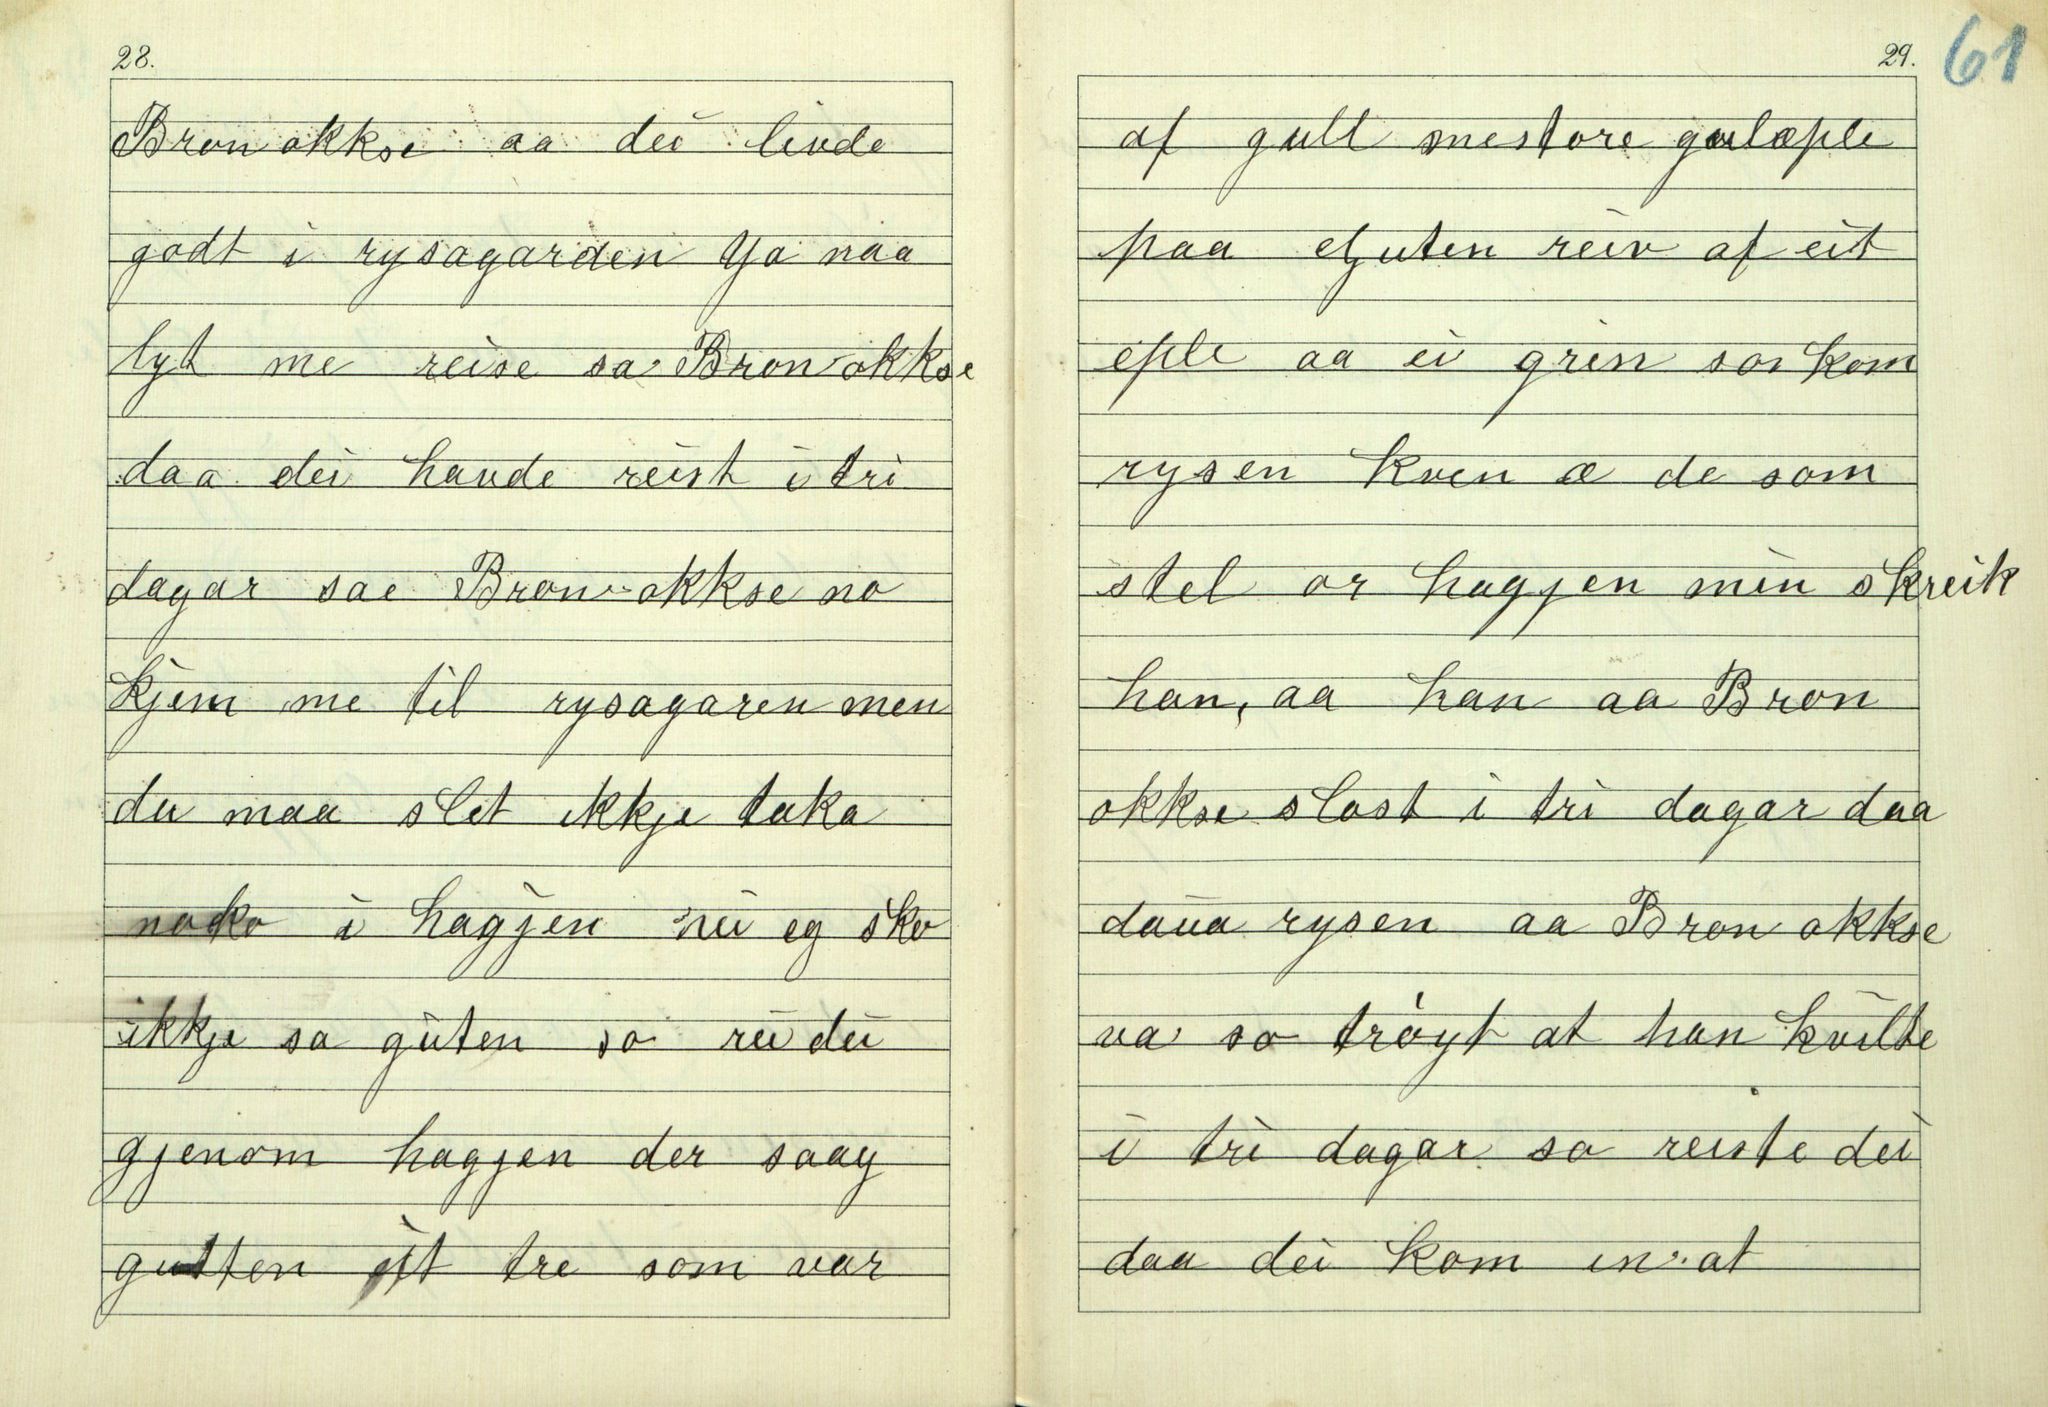 28.
Bron okkse aa dei livde
godt i rysagarden Ya naa
lyt me reise sa Bron okkse
daa dei havde reist i tri
dagar sae Bron okkse no
kjem me til rysagaren men
du maa slet ikkje taka
noko i hagjen nei eg sko
ikkje sa guten so rei dei
gjenom hagjen der saag
gutten eit tre som var
29.
61
af gull mestore gulæple
paa Guten reiv af eit
eple aa ei grin so kom
rysen kven æ de som
stel or hagjen min skreik
han, aa han aa Bron
okkse slost i tri dagar daa
daua rysen aa Bron okkse
va so trøyt at han kvilte
i tri dagar so reiste dei
daa dei kom en at